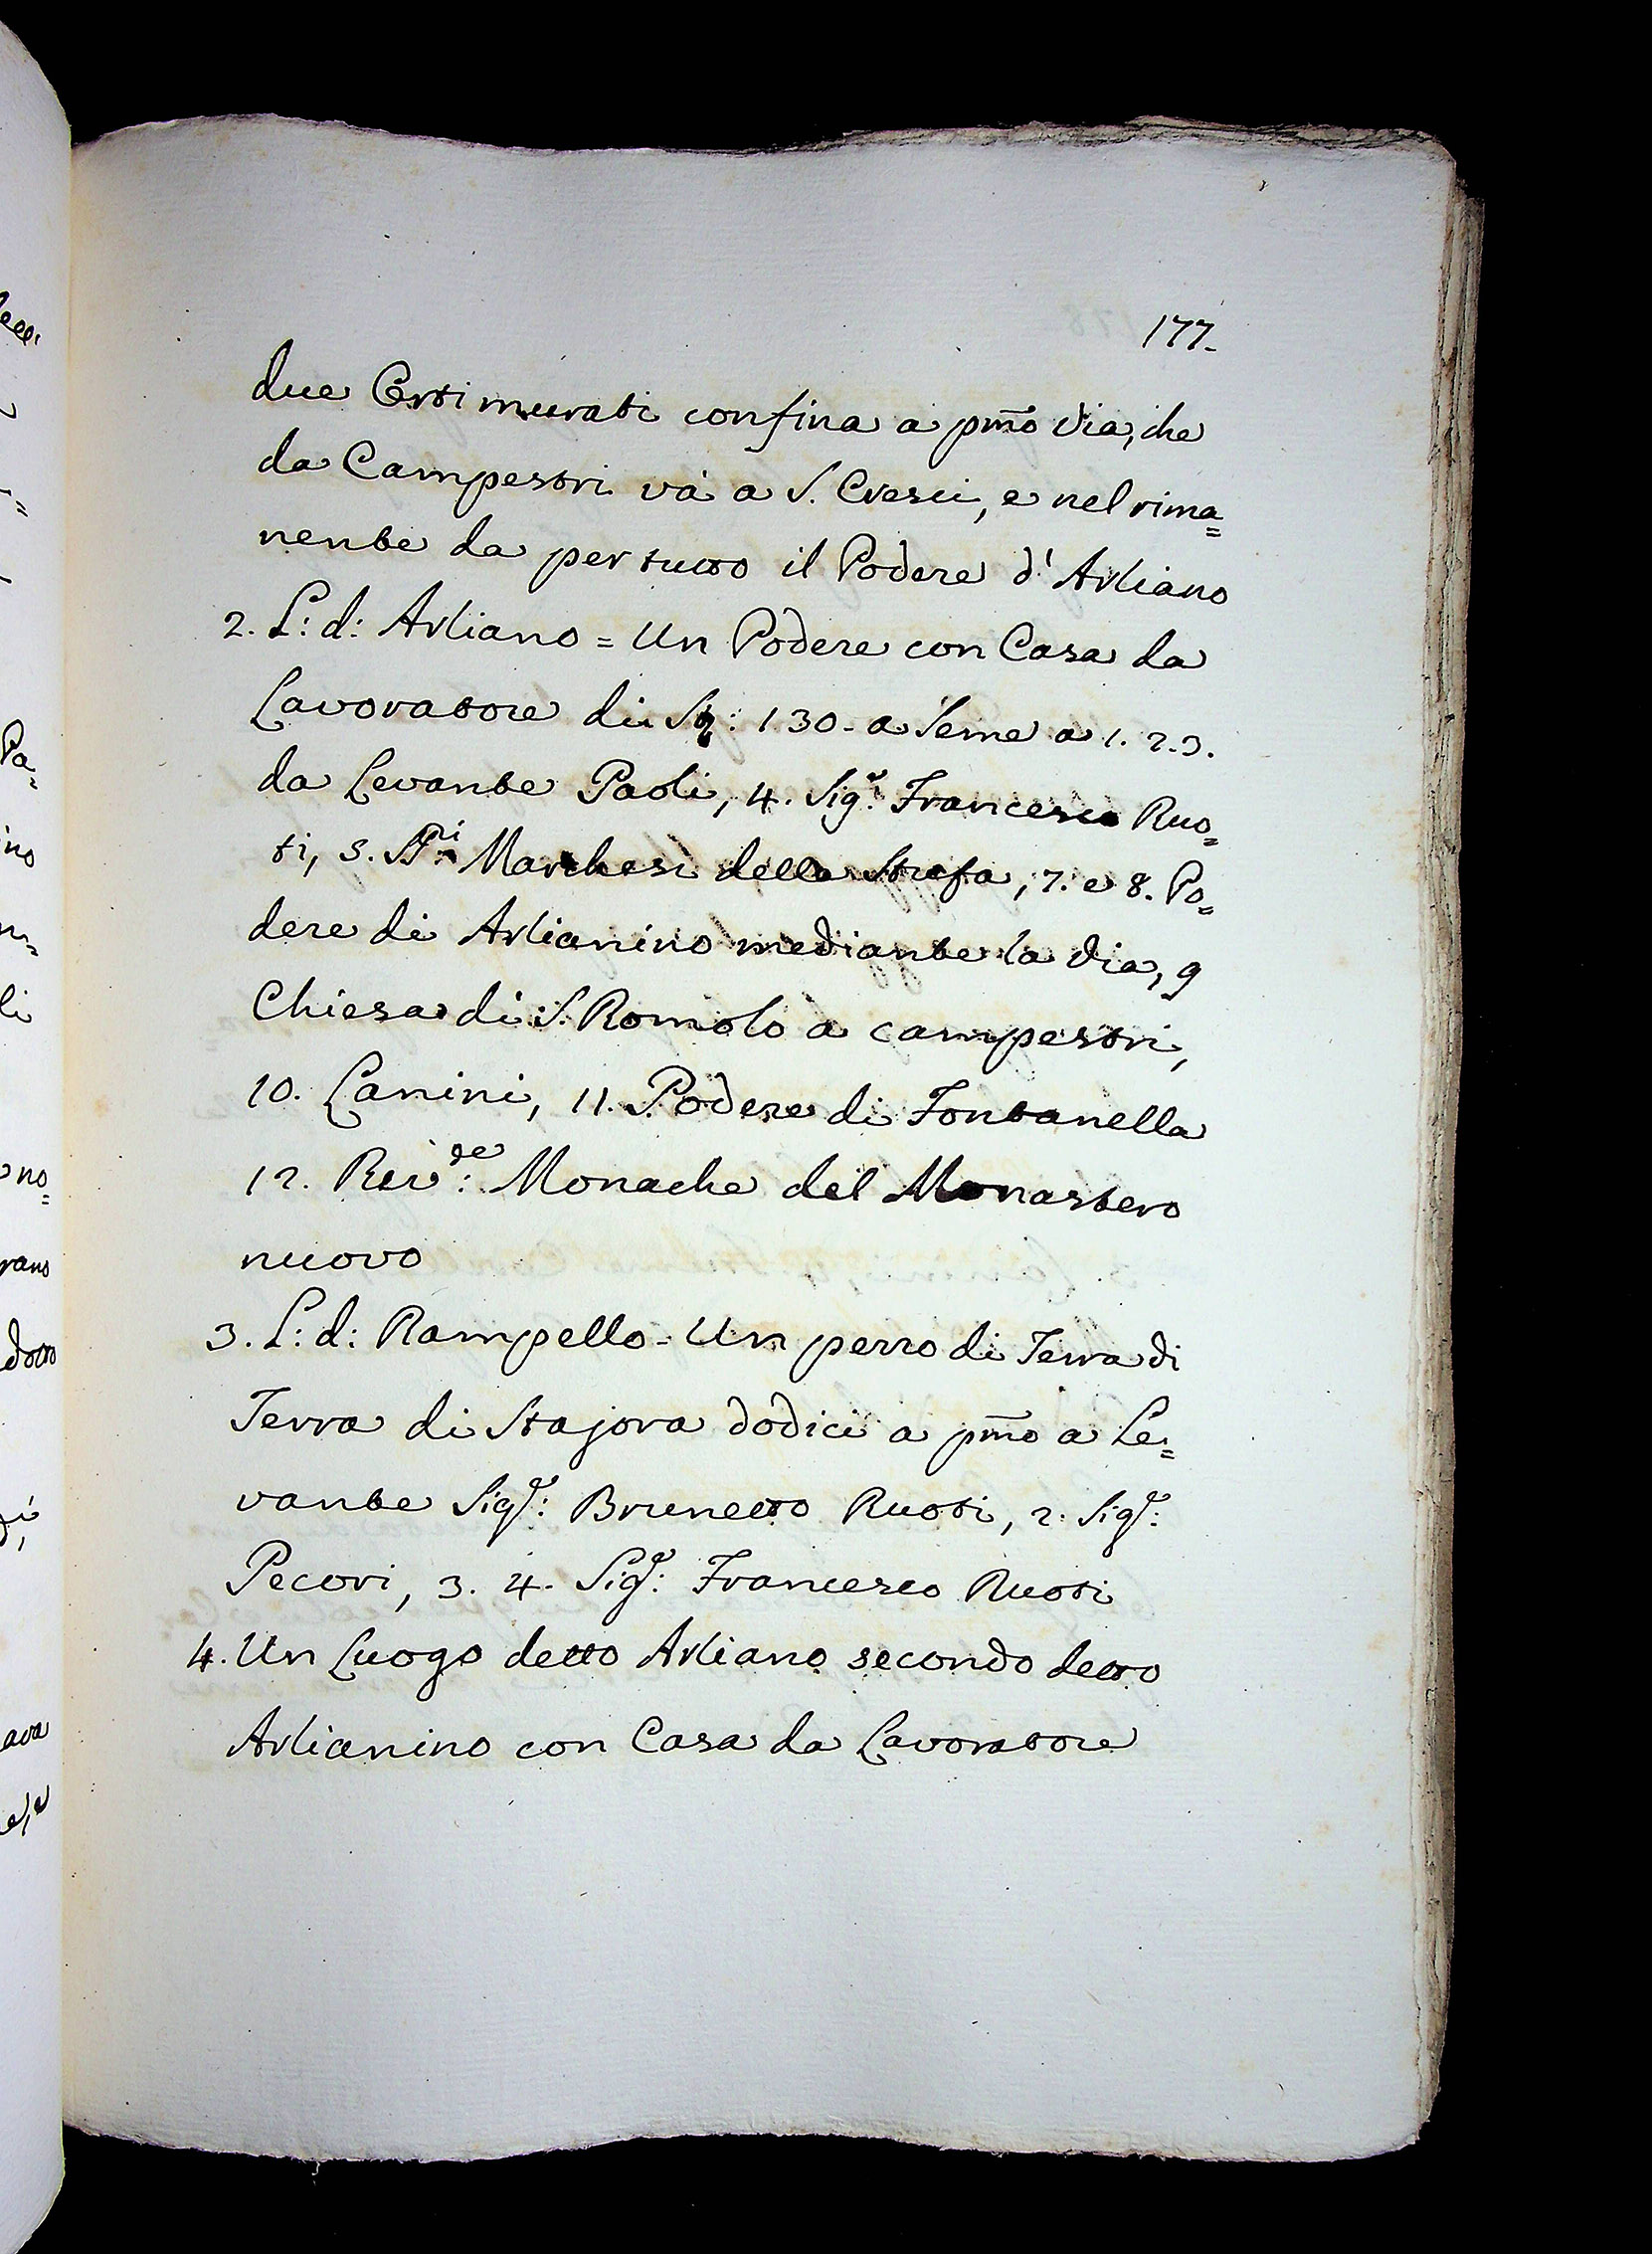 177.
due Orti murati confina a pmo via, che
da Campestri và a S. Cresci, e nel rima=
nente da per tutto il Podere d'Arliano
2. L: d: Arliano = Un Podere con Casa da
Lavoratore di 130. a Seme a 1. 2. 3.
da Levante Paoli, 4. Sigr. Francesco Ruo=
ti, 5. Marchesi della Stufa, 7. e 8. Po=
dere di Arlianino mediante la via, 9
Chiesa di S. Romolo a campestri,
10. Lanini, 11. Podere di Fontanella
12. Revde: Monache del Monastero
nuovo
3. L: d: Rampello = Un pezzo di Terra di
Terra di Stajora dodici a pmo a Le=
vante Sigr: Brunetto Ruoti, 2. Sigr:
Pecori, 3. 4. Sigr: Francesco Ruoti
4. Un Luogo detto Arliano secondo detto
Arlianino con Casa da Lavoratore